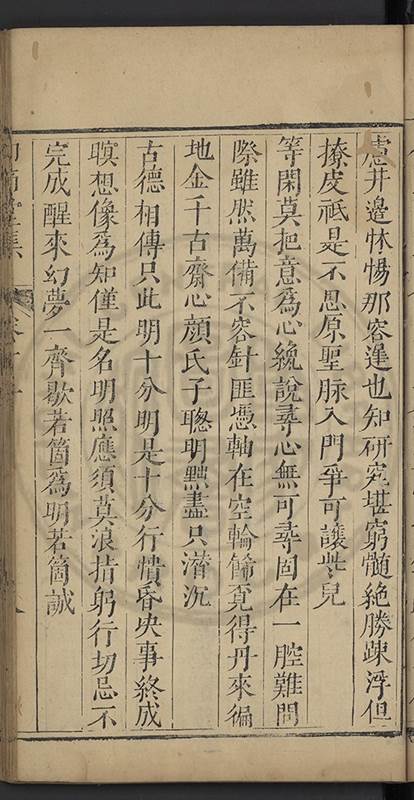 慮井邉怵惕那容進也知研究堪窮髓絶勝踈浮但
撩皮祗是不思原聖脉入門爭可讓些兒
等閑莫把意爲心纔說尋心無可尋固在一腔難問
際雖然萬備不容針匪憑軸在空輪篩覔得丹來徧
地金千古齋心顔氏子聰明黜盡只潛沉
古德相傳只此明十分明是十分行憒昏央事終成
暝想像爲知僅是名明照應須莫浪指躬行切忌不
完成醒來幻夢一齊歇若箇爲明若箇誠